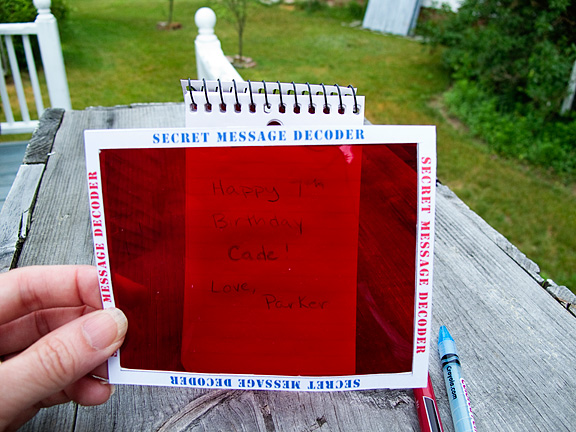 SECRET MESSAGE DECODER
SECRET MESSAGE DECODER
MESSAGE DECODER
Happy 7th
Birthday
Cade!
Love,
Parker
SECRET MESSAGE DECODER
Crayola